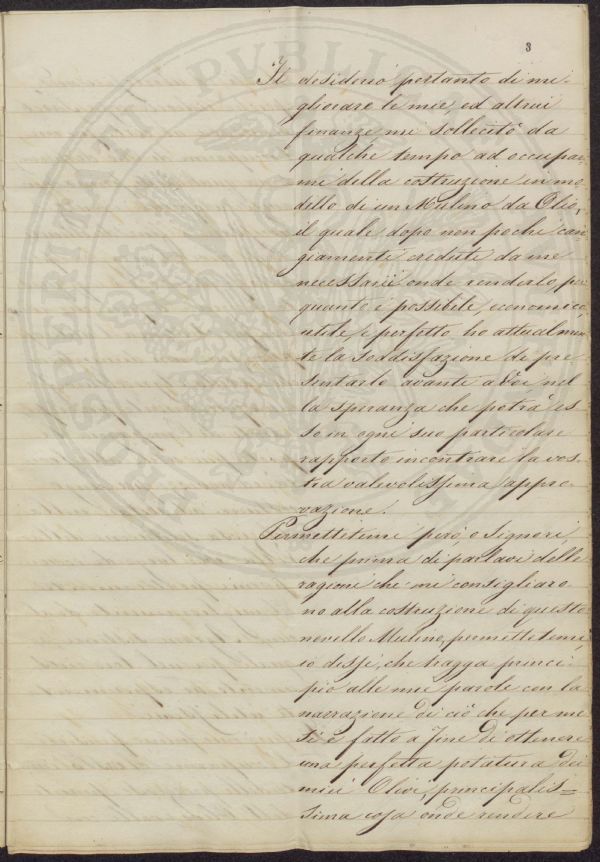 3
Il desiderio pertanto di mi-
gliorare le mie, ed altrui
finanze mi sollecitò da
qualche tempo ad occupar-
mi della costruzione in mo-
dello di un Mulino da Olio,
il quale, dopo non poche can-
giamente credute da me
necessarie onde renderlo, per
quanto è possibile, economico,
utile, e perfetto ho attualmen-
te la soddisfazione di pre-
sentarlo avante a Voi nel
la speranza che potrà es
so in ogni suo particolare
rapporto incontrare la vos-
tra valevolissima appro-
vazione.
Permettetemi però, o Signori,
che prima di parlarvi delle
ragioni che mi consigliaro
no alla costruzione di questo
novello Mulino, permettetemi,
io dissi, che tragga princi-
pio alle mie parole con la
narrazione di ciò che per me
si è fatto a fine di ottenere
una perfetta potatura dei
miei Olivi, principalis=
sima cosa onde rendere
PROSPERITATI PVBLICAE